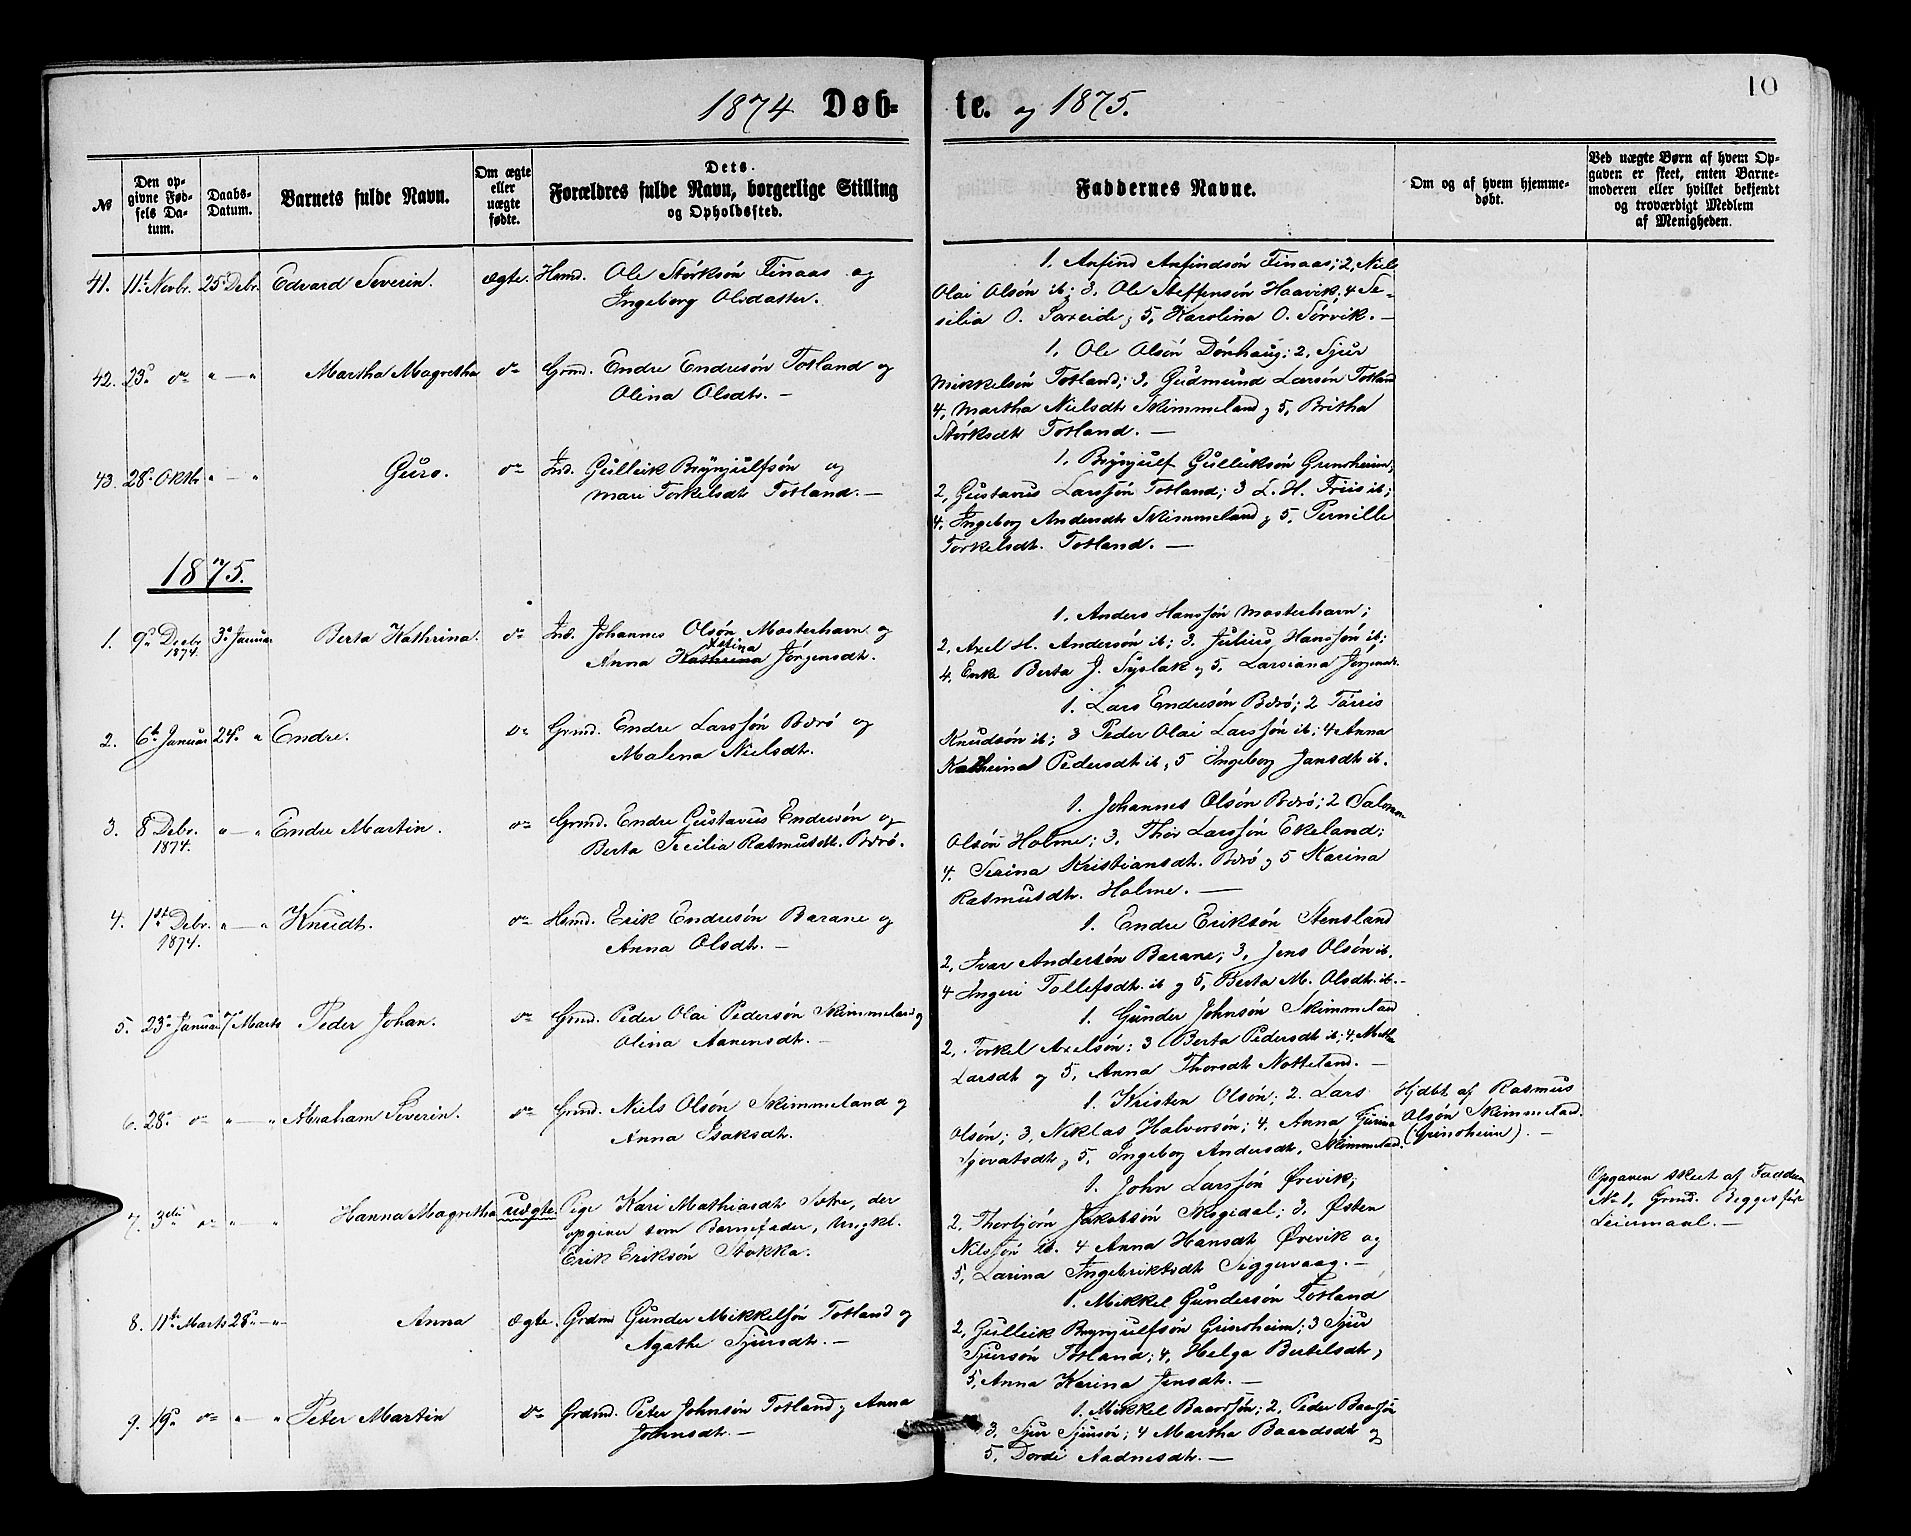 10
1874 Døb-
te. og 1875.
№
Den op-
givne Fød-
sels Da-
tum.
Daabs-
Datum.
Barnets fulde Navn.
Om ægte
eller
uægte
fødte.
Dets
Forældres fulde Navn, borgerlige Stilling
og Opholdssted.
Faddernes Navne.
Om og af hvem hjemme-
døbt.
Ved uægte Børn af hvem Op-
gaven er skeet, enten Barne-
moderen eller hvilket bekjendt
og troværdigt Medlem
af Menigheden.
41. 11te Novbr. 25de Debr. Edvard Severin. ægte. Hsmd. Ole Størksøn Finaas og
Ingeborg Olsdatter.
1. Anfind Anfindsøn Finaas; 2, Niels
Olai Olsøn ib; 3. Ole Steffensøn Haavik; 4 Se-
silia O. Sareide, 5, Karolina O. Sørvik. —
42. 23de do " — " Martha Magretha do Grmd. Endre Endresøn Totland og
Olina Olsdtr. —
1. Ole Olsøn Dønhaug; 2, Sjur
Mikkelsøn Totland; 3, Gudmund Larsøn Totland
4, Martha Nielsdtr Skimmeland og 5, Britha
Størksdtr Totland. —
43. 28de Oktbr " — " Guro. do Ind. Gulleik Brynjulfsøn og
Mari Torkelsdtr Totland. —
1. Brynjulf Gulleiksøn Grinsheim;
2, Gustavus Larssøn Totland; 3 L. H. Friis ib;
4. Ingeborg Andersdtr Skimmeland og 5. Pernille
Torkelsdtr. Totland. —
1875.
1. 9de Decbr 3de Januar Berta Kathrina. do Ind. Johannes Olsøn Mosterhavn og
1874.
Stina
Anna Kathrina Jørgensdtr.
1. Anders Hanssøn Mosterhavn;
2, Axel H. Andersøn ib; 3. Julius Hanssøn ib;
4. Enke Berta J. Syslak og 5, Larsiana Jørgensdtr.
2. 6te Januar 24de " Endre. do Grmd. Endre Larssøn Børø og
Malena Nielsdtr.
1. Lars Endresøn Børø; 2 Tørris
Knudsøn ib; 3 Peder Olai Larssøn ib; 4 Anna
Kathrina Pedersdtr ib, 5 Ingeborg Jansdtr ib.
3. 8de Debr. " — " Endre Martin. do Grmd. Endre Gustavus Endresøn og
1874.
Berta Secilia Rasmusdtr. Børø.
1. Johannes Olsøn Børø; 2 Salmon
Olsøn Holme; 3, Thor Larssøn Ekeland;
4. Serina Kristiansdtr. Børø og 5 Karina
Rasmusdtr. Holme. —
4. 1ste Debr. " — " Knudt. do Hsmd. Erik Endresøn Barane og
1874.
Anna Olsdtr. —
1. Endre Eriksøn Stensland
2, Ivar Andersøn Barane; 3, Jens Olsøn ib.
4 Ingeri Tollefsdtr. ib og 5, Berta M. Olsdtr. ib. -
5. 23de Januar 7de Marts Peder Johan. do Grmd. Peder Olai Pedersøn Skimmeland og
Olina Aanensdtr. —
1. Gunder Johnsøn Skimmeland
2, Torkel Axelsøn; 3 Berta Pedersdtr ib; 4, Metha
Larsdtr og 5, Anna Thorsdtr Notteland. —
6. 28de do " — " Abraham Severin. do Grmd. Niels Olsøn Skimmeland og
Anna Isaksdtr.
1. Kristen Olsøn; 2. Lars
Olsøn; 3, Niklas Halvorsøn; 4, Anna Jurina
Sjovatsdtr, 5, Ingeborg Andersdtr, Skimmeland.
Hjdbt af Rasmus
Olsøn Skimmeland.
(Grinsheim). —
7. 3die do " " Hanna Magretha uægte. Pige Kari Mathiasdtr Sætre, der
opgiver som Barnefader, Ungkl.
Erik Eriksøn Stokka.
1. John Larssøn Ørevik;
2, Thorbjørn Jakobsøn Skogidal; 3, Østen
Nilssøn ib. 4 Anna Hansdtr Ørevik og
5, Larina Ingebriktsdtr Siggervaag. —
Opgaven skeet af Fadder
No 1, Grmd. Begges første
Leiermaal. —
8. 11te Marts 28de — " Anna ægte. Grdmd Gunder Mikkelsøn Totland og
Agathe Sjursdtr. —
1. Mikkel Gundersøn Totland
2, Gulleik Brynjulfsøn Grinsheim; 3 Sjur
Sjursøn Totland; 4, Helga Bertelsdtr,
5, Anna Karina Jensdtr. —
9. 19de do " — " Peter Martin do Grdmd. Peter Johnsøn Totland og Anna
Johnsdtr. —
1. Mikkel Baardsøn; 2, Peder Baardsøn
3. Sjur Sjursøn; 4 Martha Baardsdtr og
5. Dordi Aadnesdtr. —